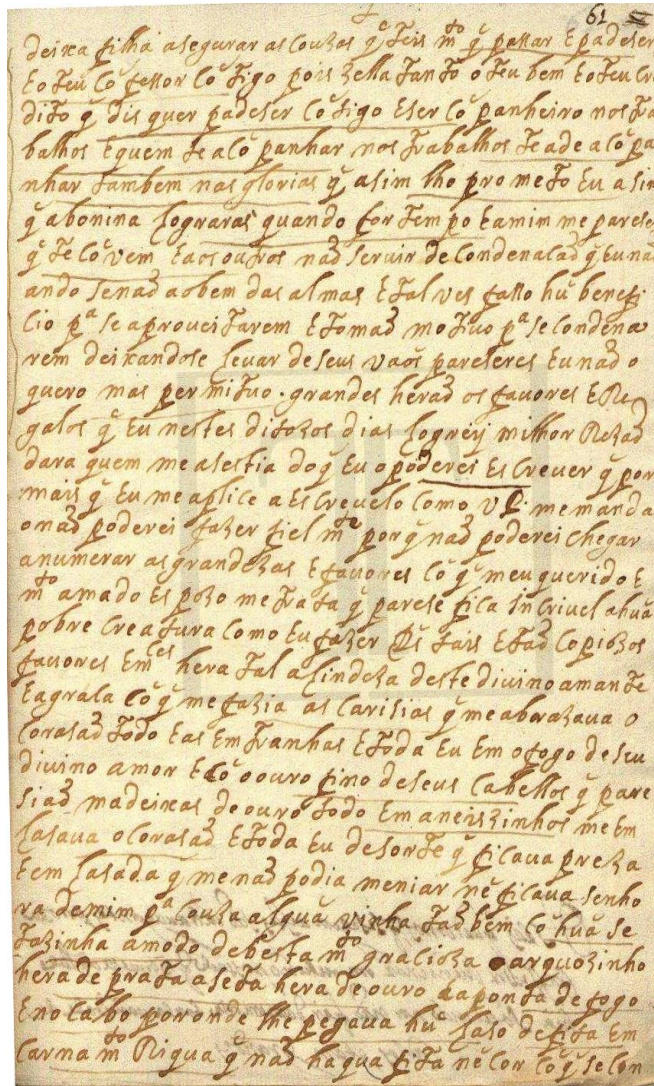 61
deixa filha asegurar as couzas q̃ teis mto q̃ passar E padeser
E o teu cõfessor cõtigo pois zella tanto o teu bem E o teu Cre
dito q̃ dis quer padeser cõtigo E ser cõpanheiro nos tra
balhos E quem te acõpanhar nos trabalhos te a de acõpa
nhar tambem nas glorias q̃ asim lho prometo Eu asim
q̃ abonina lograras quando for tempo E amim me parese
q̃ te cõvem E aos outros naõ servir de condenacaõ q̃ Eu naõ
ando senaõ ao bem das almas E tal ves fasso hũ benefi
cio pa se aproveitarem E tomaõ motivo pa se condena
rem deixandose levar de seus vaõs pareseres Eu naõ o
quero mas permituo. grandes heraõ os favores E Re
galos q̃ Eu nestes ditozos dias logreij milhor Rezaõ
dara quem me asestia do q̃ Eu o poderei Escrever q̃ por
mais q̃ Eu me aplice a Escrevelo como VP. me manda
o naõ poderei fazer fiel mte porq̃ naõ poderei chegar
anumerar as grandezas E favores cõ q̃ meu querido E
mto amado Espozo me trata q̃ parese fica incrivel ahuã
pobre creatura como Eu fazer Ds tais E taõ copiozos
favores E mces hera tal a lindeza deste divino amante
E agrasa cõ q̃ me fazia as carisias q̃ me abrazava o
corasaõ todo E as Emtranhas E toda Eu Em o fogo de seu
divino amor E cõ o ouro fino de seus cabellos q̃ pare
siaõ madeixas de ouro todo Em aneiszinhos me Em
lasava o corasaõ E toda Eu desorte q̃ ficava preza
E em lasada q̃ me naõ podia meniar nẽ ficava senho
ra demim pa couza alguã vinha taõbem cõ huã se
tazinha amodo debesta mto gracioza o arquozinho
hera de prata a seta hera de ouro E aponta de fogo
E no cabo por onde lhe pegava hũ laso de fita Em
carna mto Riqua q̃ naõ ha qua fita nẽ cor cõ q̃ se con